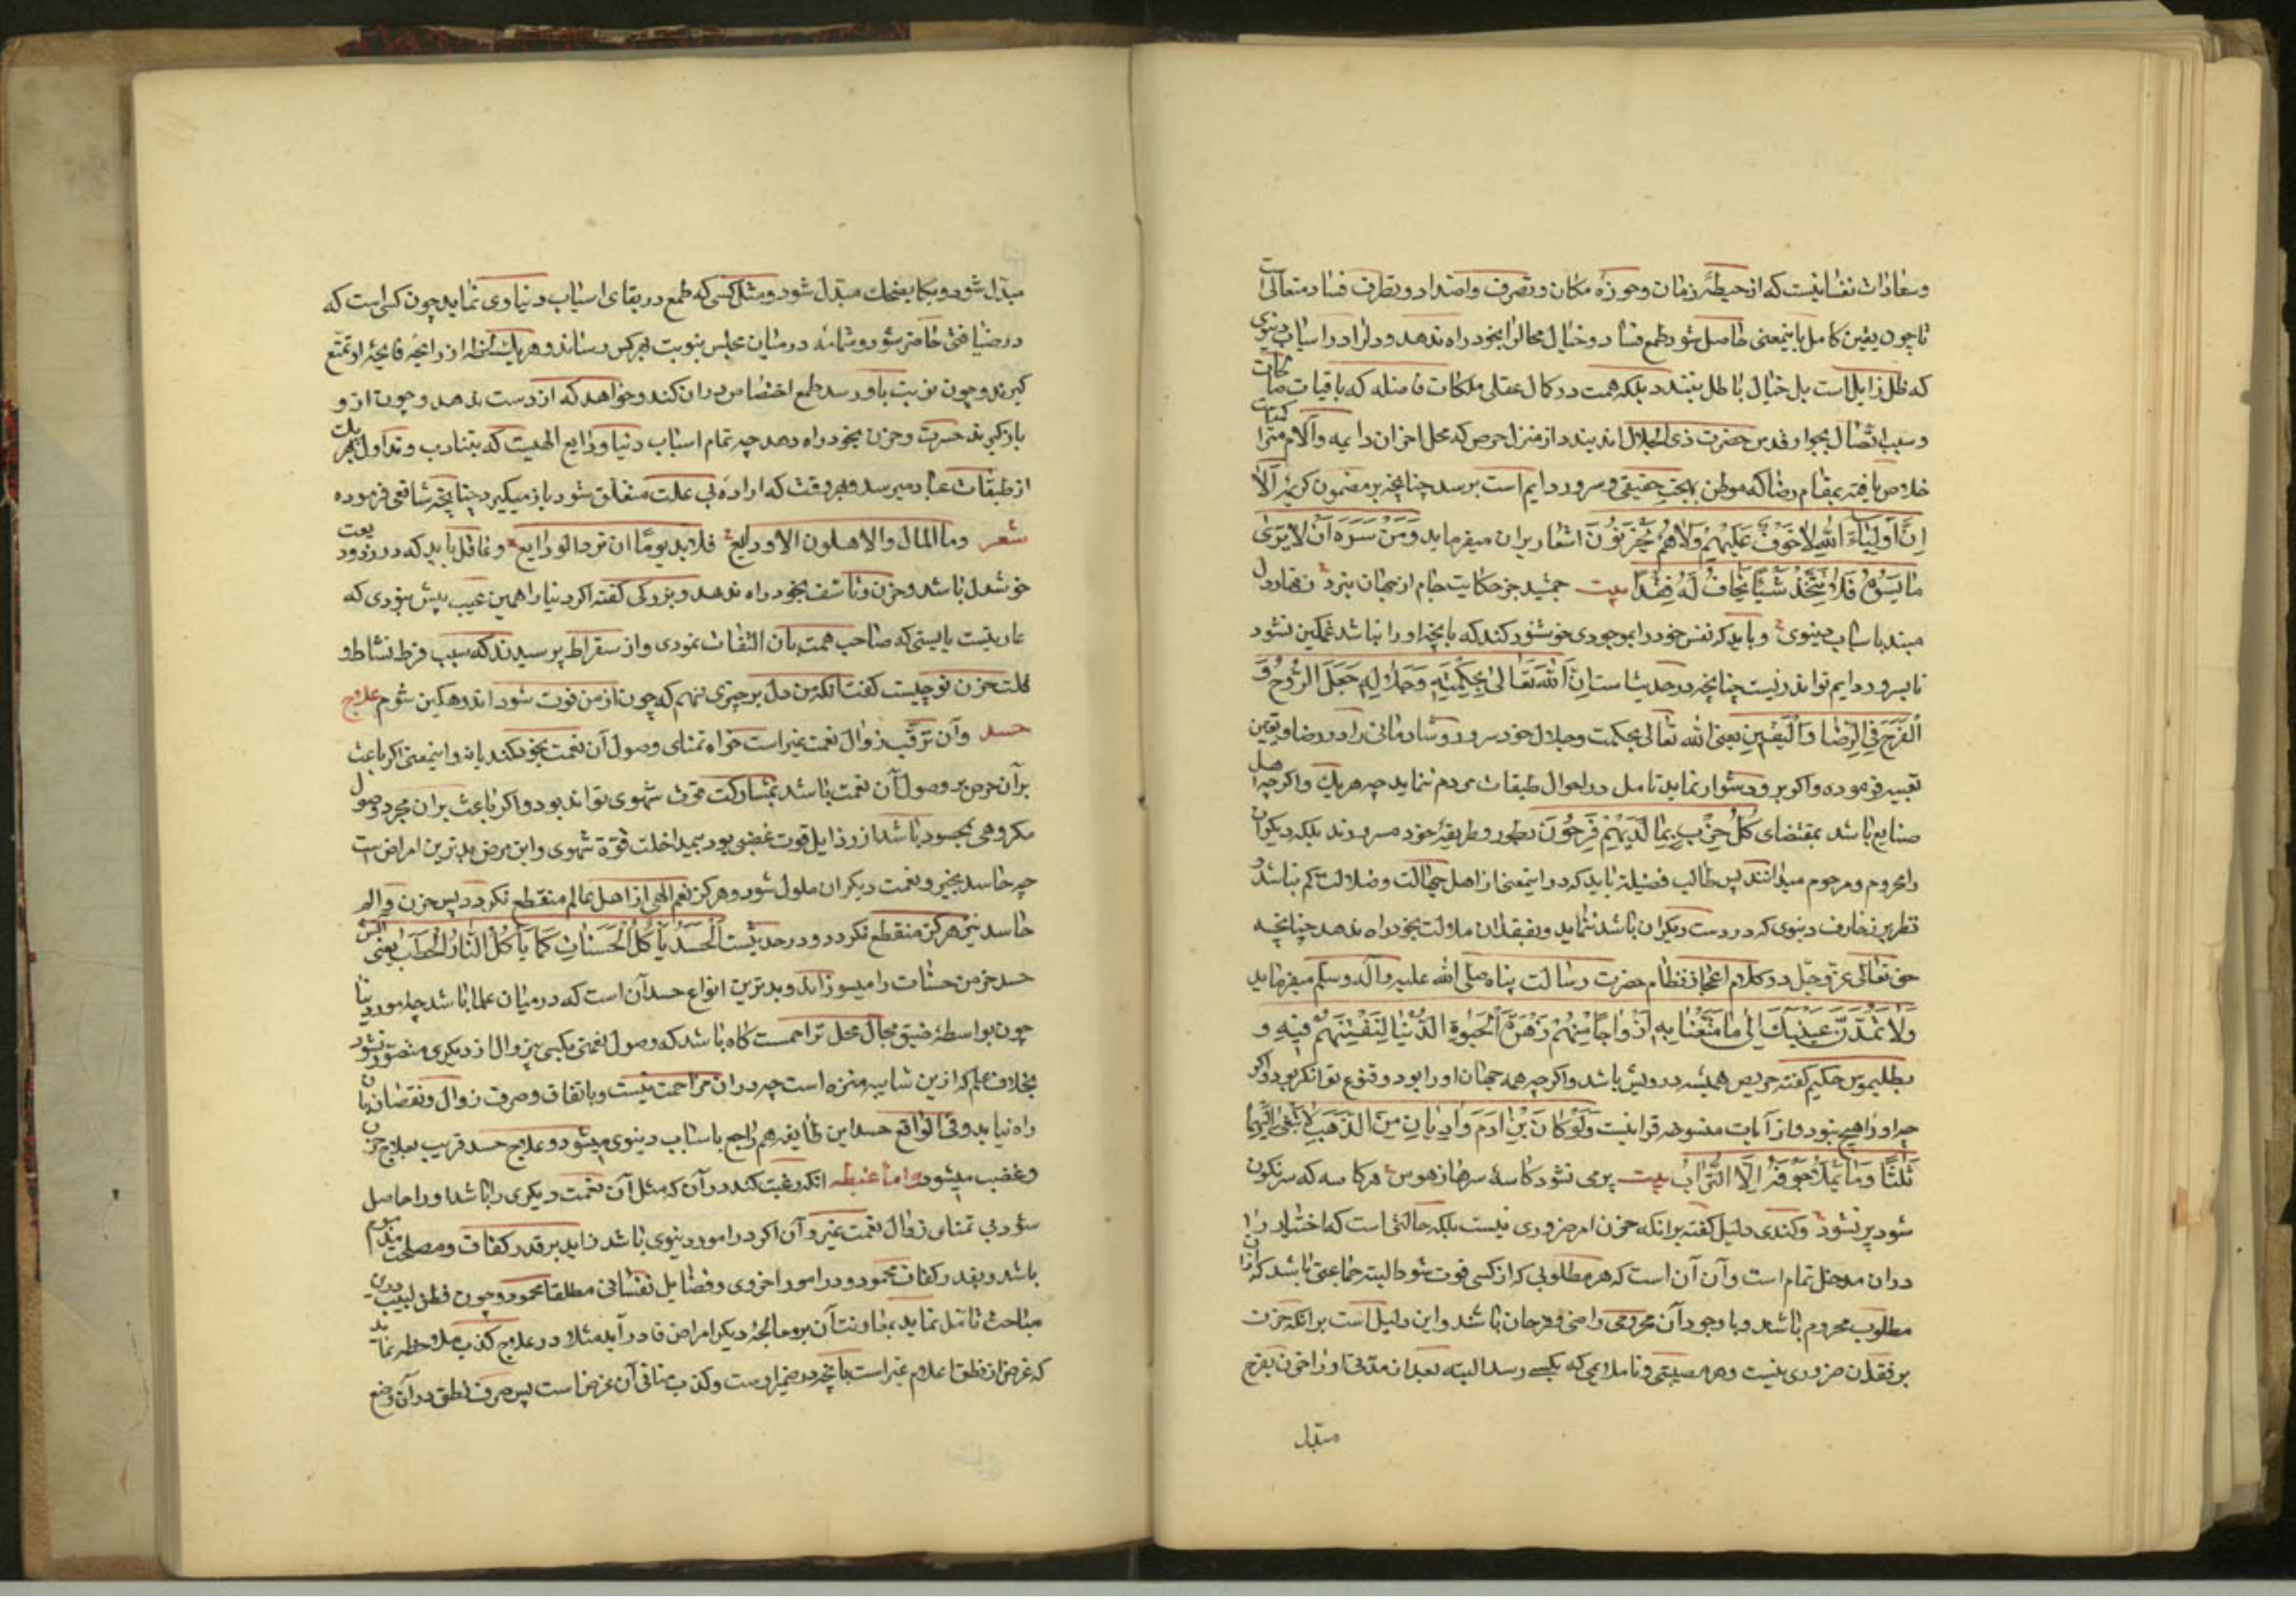 وسعادات نفسانیست که از حیطهٔ زمان و حوزهٔ مکان و تصرف و اضداد و تطرف فساد متعالی است
تا چون یقین کامل باینمعنی حاصل شود طمع فساد و خیال محال را بخود راه ندهد و دل را در اسباب دنیوی
که ظل زایل است بل خیال باطل نبندد بلکه همت در کمال عقلی و ملکات فاضله که باقیات صالحات
و سبب اتصال بجوار قدس حضرت ذی الجلال اند بندد و از منزل حرص که محل احزان دایمه و آلام متراکمه است
خلاص یافته بمقام رضا که موطن بهجت حقیقی و سرور دایم است برسد چنانچه بر مضمون کریمهٔ اَلا
اِنَّ اَولِیاءَ اللهِ لاخَوفٌ عَلَیهِم وَلاهُم یَحزَنُونَ اشعار بران میفرماید وَمَن سَرَّهُ اَن لا یَری
ما یَسُوءُ فَلا یَتَّخِذ شَیئًا یَخافُ لَهُ فَقدًا بیت جمشید جز حکایت جام از جهان نبرد زنهار دل
مبند باسباب دنیوی و باید که نفس خود را بموجودی خوشنود کند که بانچه او را نباشد غمگین نشود
تا بسرور دایم تواند زیست چنانچه در حدیث است اِنَّ اللهَ تَعالی بِحِکمَتِهِ وَجَلالِهِ جَعَلَ الرَّوحَ وَ
الفَرَحَ فِی الرِّضا وَالیَقینِ یعنی الله تعالی بحکمت و جلال خود سرور و شادمانی را در رضا و یقین
تعبیه فرموده و اگر برو دشوار نماید تامل در احوال طبقات مردم نماید چه هر یک و اگر چه اهل
صنایع باشد بمقتضای کُلُّ حِزبٍ بِما لَدَیهِم فَرِحُونَ بطور و طریقهٔ خود مسرورند بلکه دیگران
را محروم و مرحوم میدانند پس طالب فضیلة باید که در اینمعنی از اهل جهالت و ضلالت کم نباشد و
نظر بزخارف دنیوی که در دست دیگران باشد ننماید و بفقدان ملالت بخود راه ندهد چنانچه
حق تعالی عز و جل در کلام اعجاز نظام حضرت رسالت پناه صلی الله علیه و آله و سلم میفرماید
وَلا تَمُدَّنَّ عَینَیکَ اِلی ما مَتَّعنا بِهِ اَزواجًا مِنهُم زَهرَةَ الحَیوةِ الدُّنیا لِنَفتِنَهُم فیهِ و
بطلیموس حکیم گفته حریص همیشه درویش باشد و اگر چه همه جهان او را بود و قنوع توانگر بود و اگر
چه او را هیچ نبود و از آیات منسوخه قرانیست وَلَو کانَ لِابنِ ادَمَ وادِیانِ مِنَ الذَّهَبِ لابتَغی اِلَیهِما
ثَلثًا وَما یَملَأُ جَوفَهُ اِلَّا التُّرابُ بیت پر می نشود کاسهٔ سرها ز هوس هر کاسه که سرنگون
شود پر نشود و کندی دلیل گفته برانکه حزن امر ضروری نیست بلکه حالتی است که اختیار را
دران مدخل تمام است و آن آن است که هر مطلوبی که از کسی فوت شود البته جماعتی باشد که ازان
مطلوب محروم باشند و با وجود آن محرومی راضی و فرحان باشند و این دلیل است برانکه حزن
بر فقدان ضروری نیست و هر مصیبتی و ناملایمی که بکسی رسد البته بعد از مدتی آن حزن بفرح
مبدل
مبدل شود و بکا بضحک مبدل شود و مثل کسی که طمع در بقای اسباب دنیاوی نماید چون کسی است که
در ضیافتی حاضر شود و شمامه در میان مجلس بنوبت بهر کس رسانند و هر یک لحظه از رایحهٔ فایحهٔ او تمتع
گیرند و چون نوبت باو رسد طمع اختصاص دران کند و خواهد که از دست ندهد و چون از و
بازگیرند حسرت و حزن بخود راه دهد چه تمام اسباب دنیا ودایع الهیست که بتناوب و تداول بهر یک
از طبقات عباد میرسد و هر وقت که ارادهٔ بی علت متعلق شود باز میگیرد چنانچه شافعی فرموده
شعر وما المال والاهلون الا ودایع فلابد یومًا ان ترد الودایع و عاقل باید که در رد ودیعت
خوشدل باشد و حزن و تاسف بخود راه ندهد و بزرگی گفته اگر دنیا را همین عیب بیش نبودی که
عاریتیست بایستی که صاحب همت بان التفات ننمودی و از سقراط پرسیدند که سبب فرط نشاط و
قلت حزن تو چیست گفت آنکه من دل بر چیزی ننهم که چون از من فوت شود اندوهگین شوم علاج
حسد و آن ترقب زوال نعمت غیر است خواه تمنای وصول آن نعمت بخود کند یا نه و اینمعنی اگر باعث
بران حرص بر وصول آن نعمت باشد بمشارکت قوت شهوی تواند بود و اگر باعث بران مجرد وصول
مکروهی بمحسود باشد از رذایل قوت غضبی بود بمداخلت قوة شهوی و این مرض بدترین امراض است
چه حاسد بخیر و نعمت دیگران ملول شود و هرگز نعم الهی از اهل عالم منقطع نگردد پس حزن و الم
حاسد نیز هرگز منقطع نگردد و در حدیثست اَلحَسَدُ یَأکُلُ الحَسَناتِ کَما یَأکُلُ النّارُ الحَطَبَ یعنی آتش
حسد خرمن حسنات را میسوزاند و بدترین انواع حسد آن است که در میان علما باشد چه امور دنیا
چون بواسطهٔ ضیق مجال محل تزاحمست گاه باشد که وصول نعمتی بکسی بی زوال از دیگری متصور نشود
بخلاف علم که ازین شایبه منزه است چه دران مزاحمت نیست و بانفاق و صرف زوال و نقصان بان
راه نیابد و فی الواقع حسد این طایفه هم راجع باسباب دنیوی میشود و علاج حسد قریب بعلاج حزن
و غضب میشود و اما غبطه انکه رغبت کند در آن که مثل آن نعمت دیگری را باشد او را حاصل
شود بی تمنای زوال نعمت غیر و آن اگر در امور دنیوی باشد زاید بر قدر کفاف و مصلحت مذموم
باشد و بقدر کفاف محمود و در امور اخروی و فضایل نفسانی مطلقا محمود و چون فطن لبیب درین
مباحث تامل نماید بمعاونت آن بر معالجهٔ دیگر امراض قادر آید مثلا در علاج کذب ملاحظه نماید
که غرض از نطق اعلام غیر است بانچه در ضمیر اوست و کذب منافی آن غرض است پس صرف نطق در آن وضع